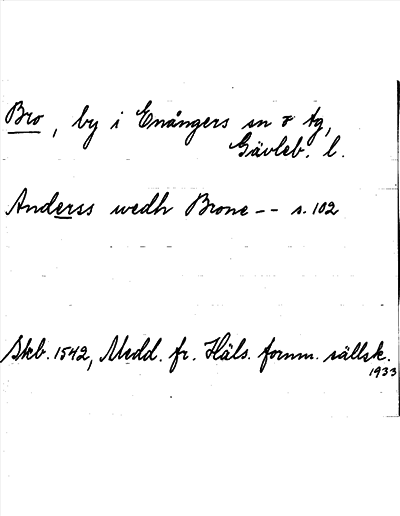 Bro, by i Enångers sn o tg,
Gävleb. l.
Anderss wedh Brone -- s. 102
Skb. 1542, Medd. fr. Häls. fornm. sällsk.
1933